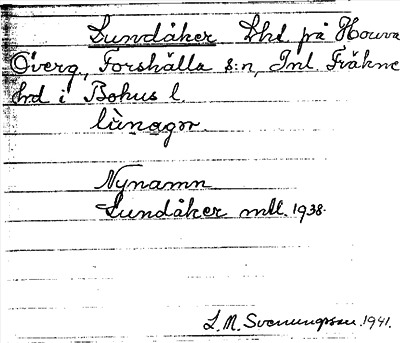 Lundåker Lht på Houva
Överg., Forshälla s:n, Inl. Fräkne
hrd i Bohus l.
lùnagər.
Nynamn
Lundåker mtl. 1938.
L.M. Svenungsson. 1941.